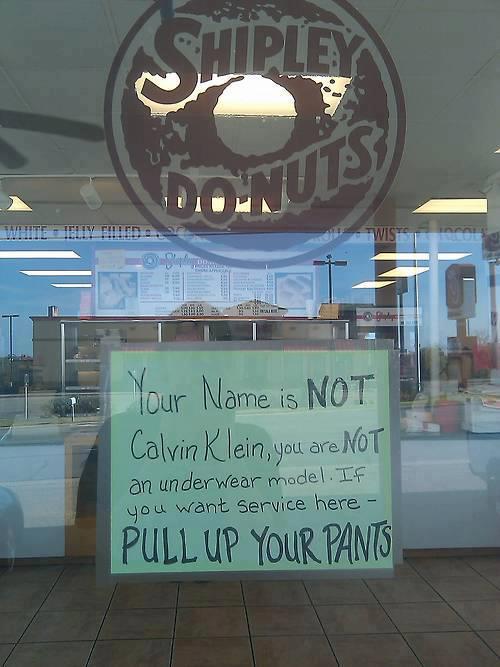 SHIPLEY
DO-NUTS
WHITE JELLY FILLED
TWISTS
Your Name is NOT
Calvin Klein, you are NOT
an underwear model. If
you want service here -
PULL UP YOUR PANTS